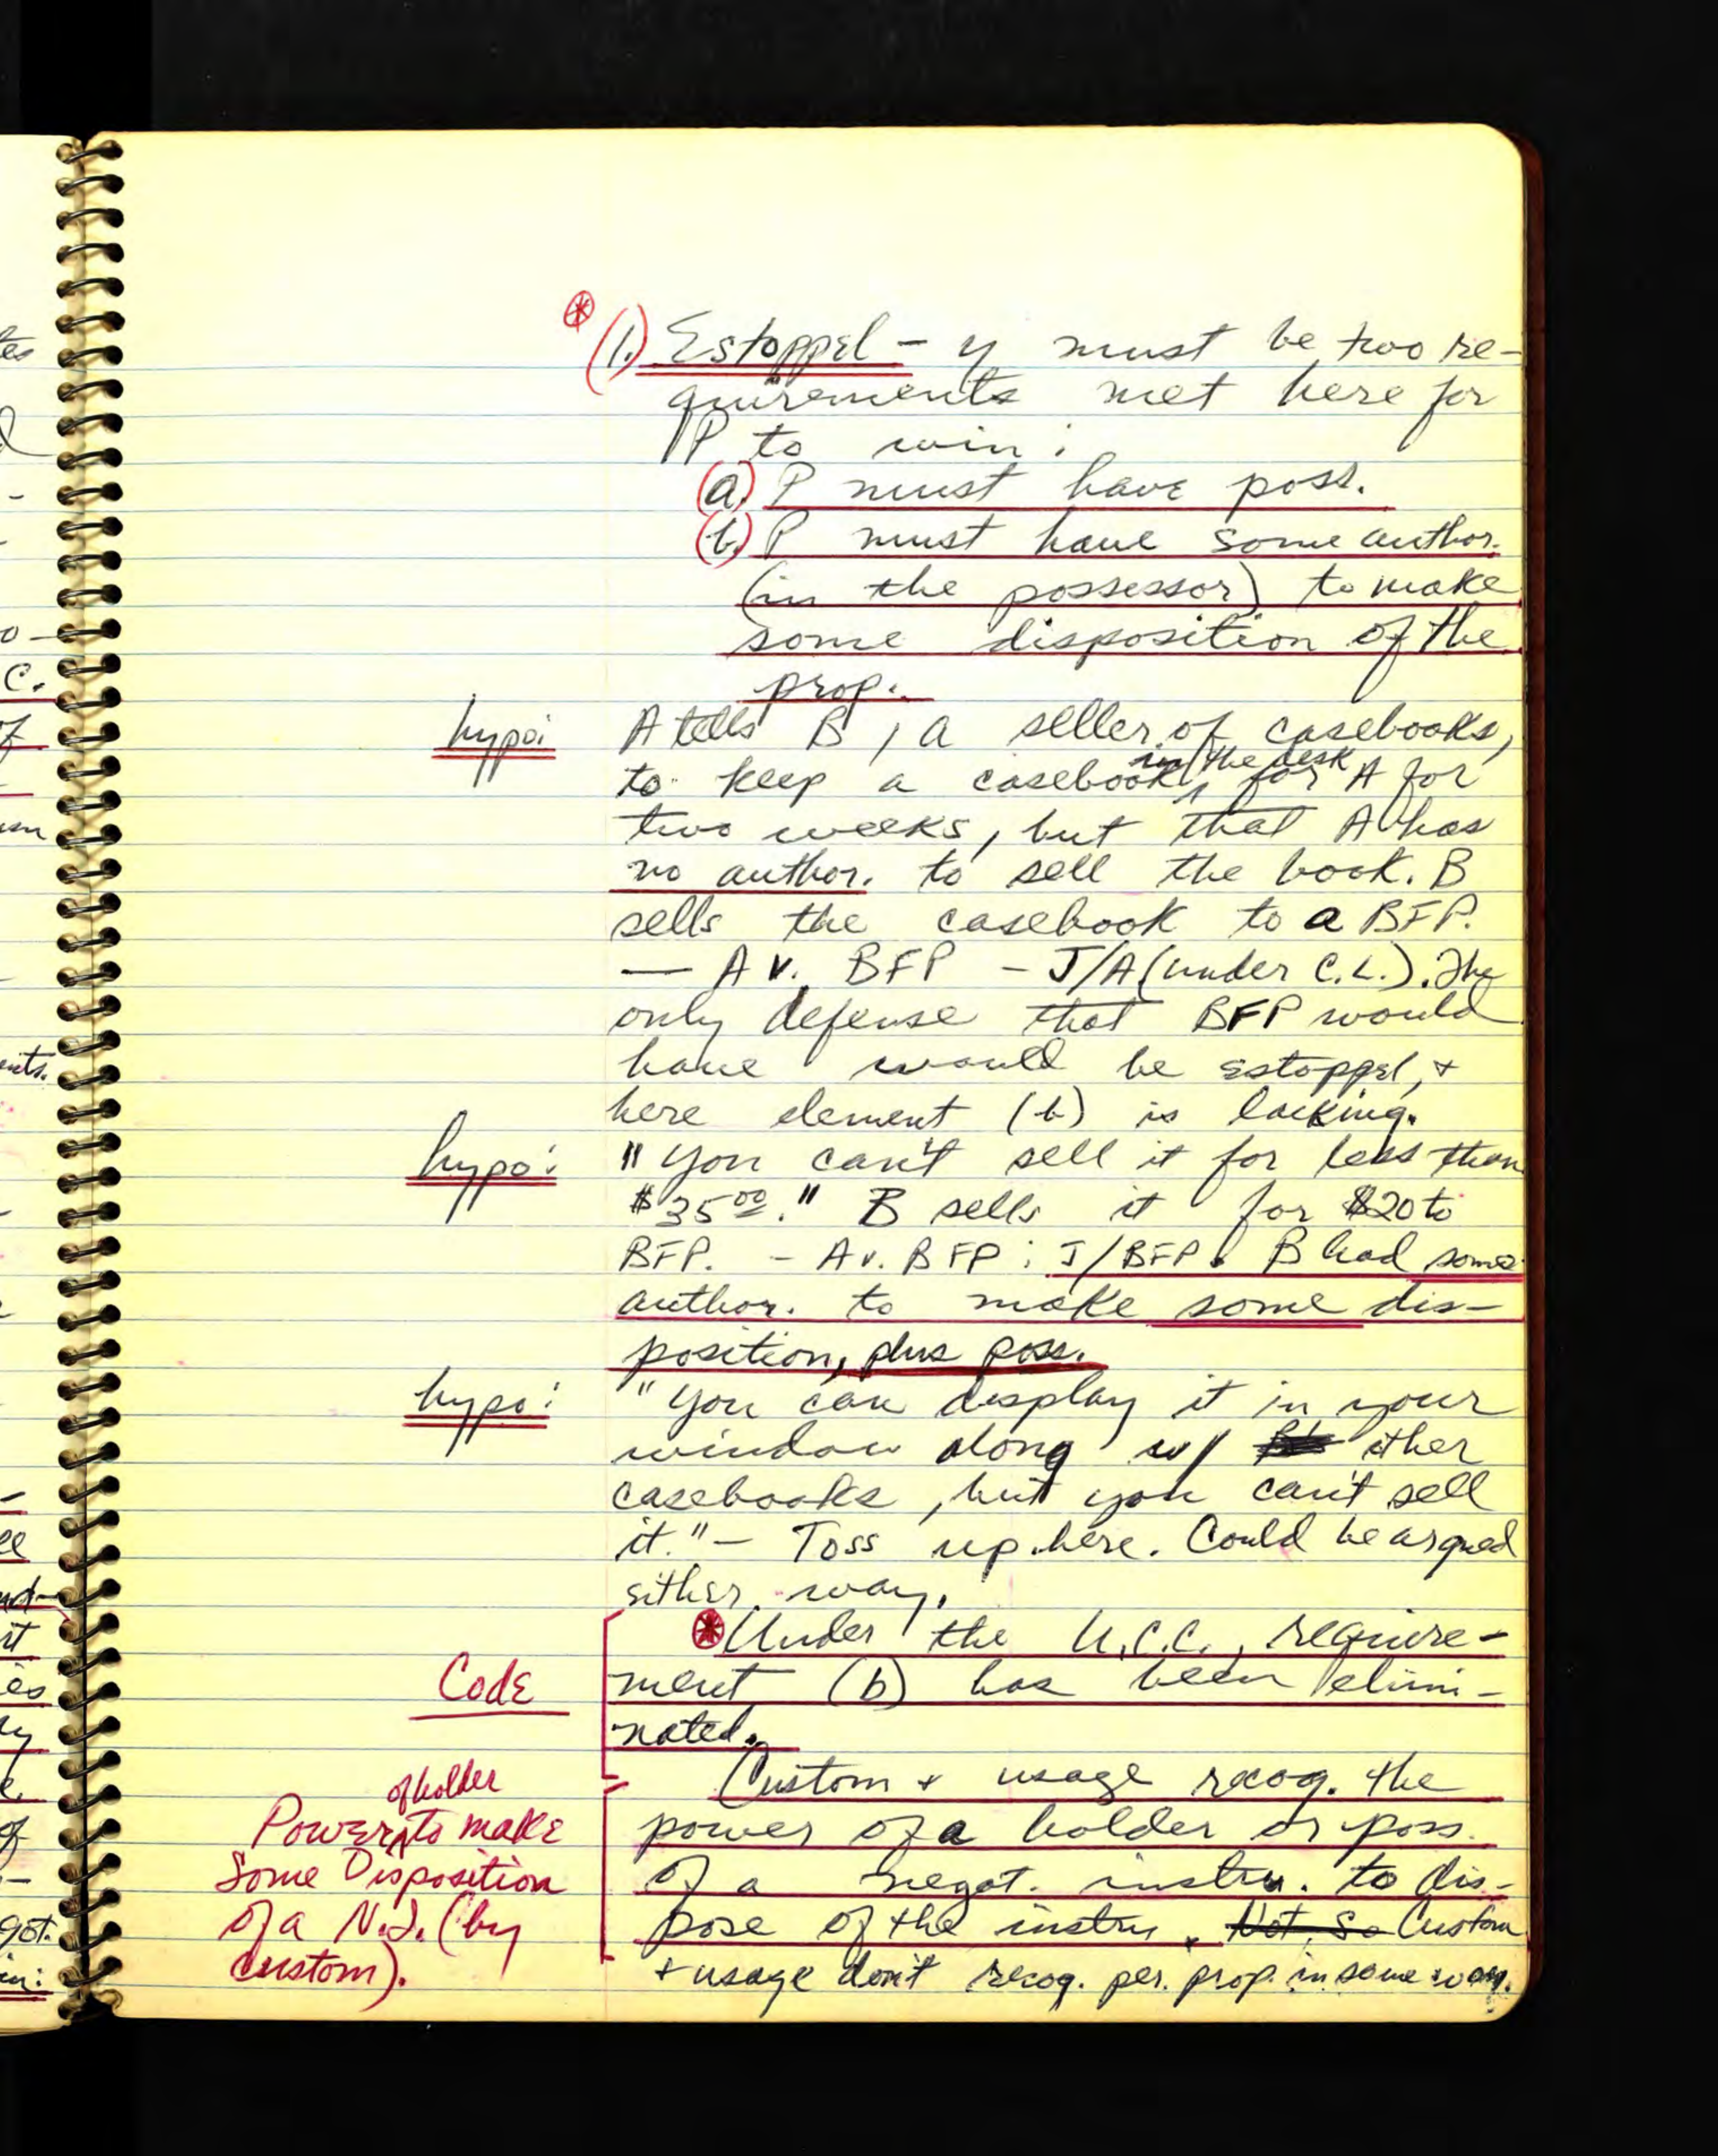 (1.) Estoppel - y must be two re-
quirements met here for
P to win:
(a.) P must have poss.
(b.) P must have some author.
(in the possessor) to make
some disposition of the
prop.
hypo: A tells B, a seller of casebooks,
in the desk
to keep a casebook, for A for
two weeks, but that A has
no author. to sell the book. B
sells the casebook to a BFP.
— A v. BFP - J/A (under C.L.). The
only defense that BFP would
have would be estoppel, +
here element (b) is lacking.
hypo: "You can't sell it for less than
$35.00." B sells it for $20 to
BFP. - A v. BFP: J/BFP. B had some
author. to make some dis-
position, plus poss.
hypo: "You can display it in your
window along w/ other
casebooks, but you can't sell
it." - Toss up here. Could be argued
either way.
Under the U.C.C., require-
Code ment (b) has been elimi-
nated.
Custom + usage recog. the
power of a holder or poss.
of a negot. instru. to dis-
pose of the instru. Not so Custom
+ usage don't recog. per. prop. in same way.
of holder
Power to make
Some Disposition
of a N.I. (by
custom).